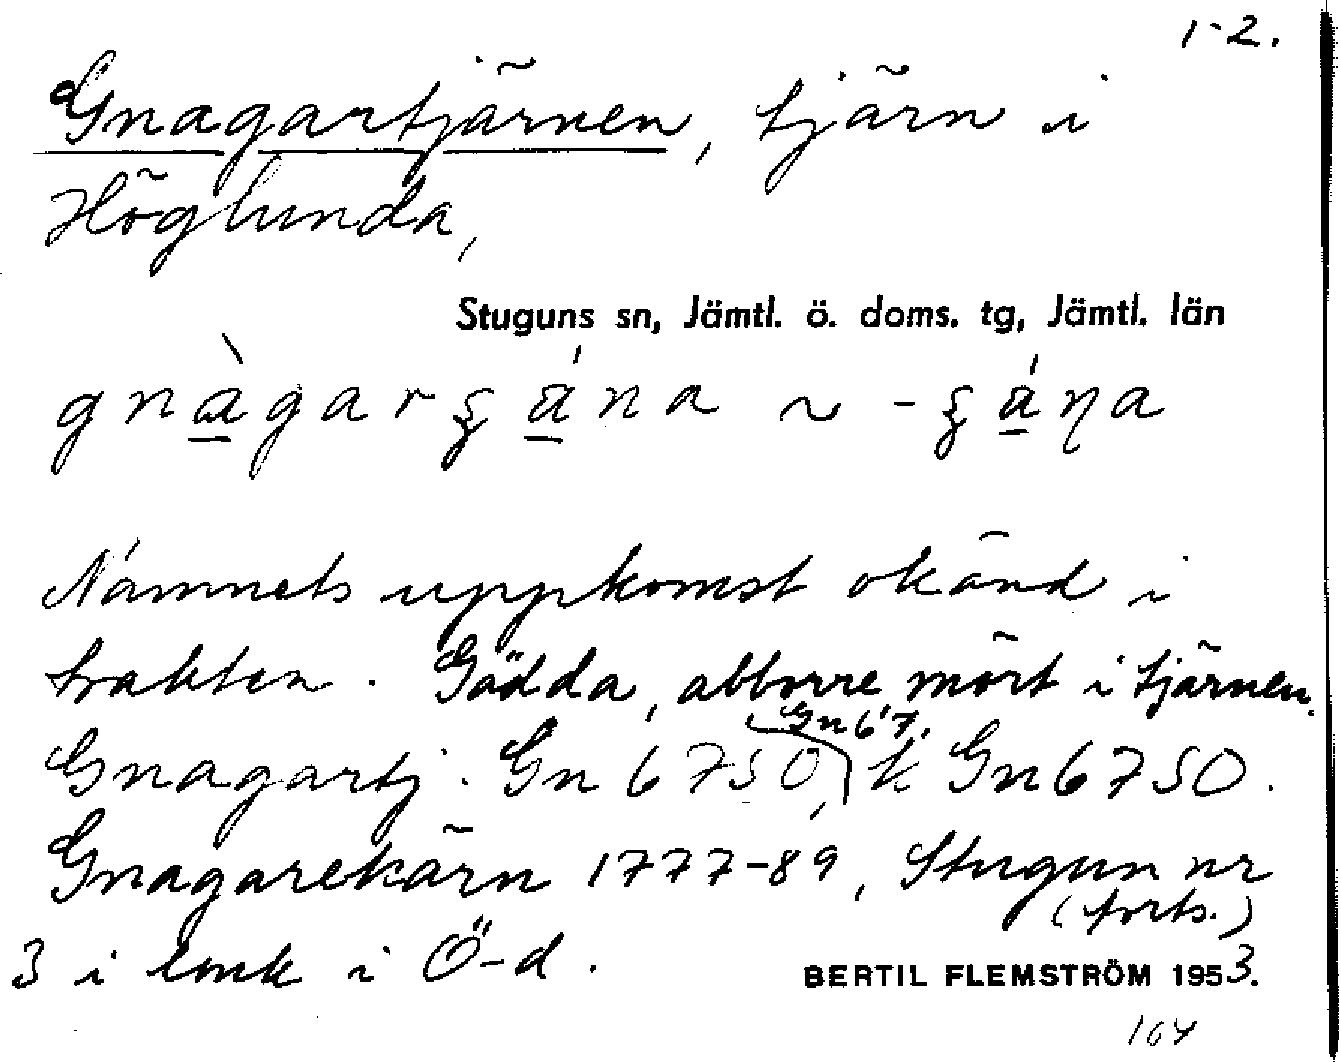 1-2.
Gnagartjärnen, tjärn i
Höglunda,
Stuguns sn, Jämtl. ö. doms. tg, Jämtl. län
Namnets uppkomst okänd i
trakten. Gädda, abborre, mört i tjärnen.
Gn 67.
Gnagartj. Gn 6750, k Gn 6750.
Gnagarekärn 1777-89, Stugun nr
(forts.)
3 i lmk i Ö-d.
BERTIL FLEMSTRÖM 1953.
104